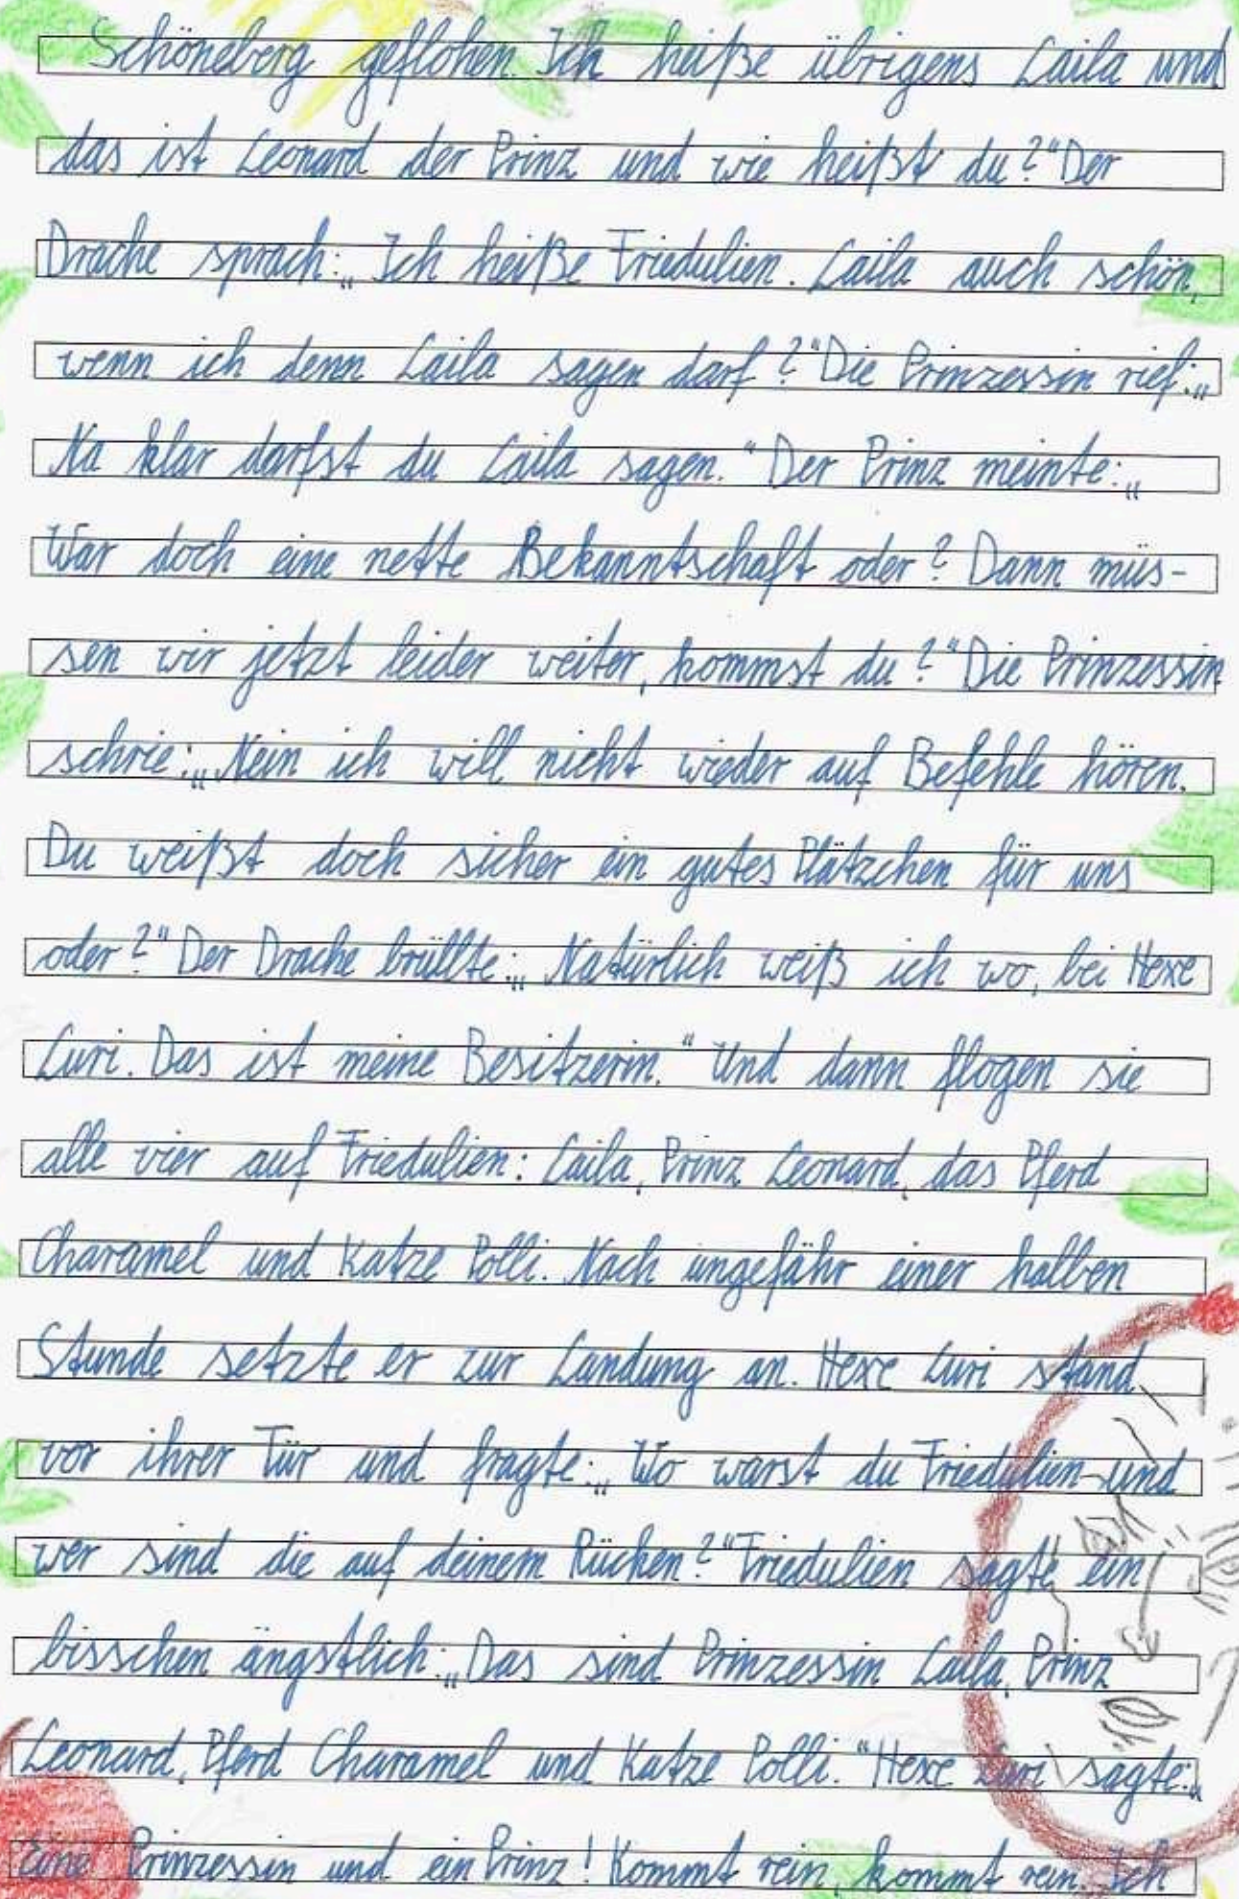 Schöneberg geflohen. Ich heiße übrigens Laila und
das ist Leonard der Prinz und wie heißt du?“Der
Drache sprach:„Ich heiße Friedulien. Laila auch schön,
wenn ich denn Laila sagen darf?“Die Prinzessin rief:„
Na klar darfst du Laila sagen.“Der Prinz meinte:„
War doch eine nette Bekanntschaft oder? Dann müs-
sen wir jetzt leider weiter, kommst du?“Die Prinzessin
schrie:„Nein ich will nicht wieder auf Befehle hören.
Du weißt doch sicher ein gutes Plätzchen für uns
oder?“Der Drache brüllte:„Natürlich weiß ich wo, bei Hexe
Luri. Das ist meine Besitzerin.“ Und dann flogen sie
alle vier auf Friedulien: Laila, Prinz Leonard, das Pferd
Charamel und Katze Polli. Nach ungefähr einer halben
Stunde setzte er zur Landung an. Hexe Luri stand
vor ihrer Tür und fragte:„Wo warst du Friedulien und
wer sind die auf deinem Rücken?“Friedulien sagte ein
bisschen ängstlich:„Das sind Prinzessin Laila, Prinz
Leonard, Pferd Charamel und Katze Polli.“Hexe Luri sagte:„
Eine Prinzessin und ein Prinz! Kommt rein, kommt rein. Ich